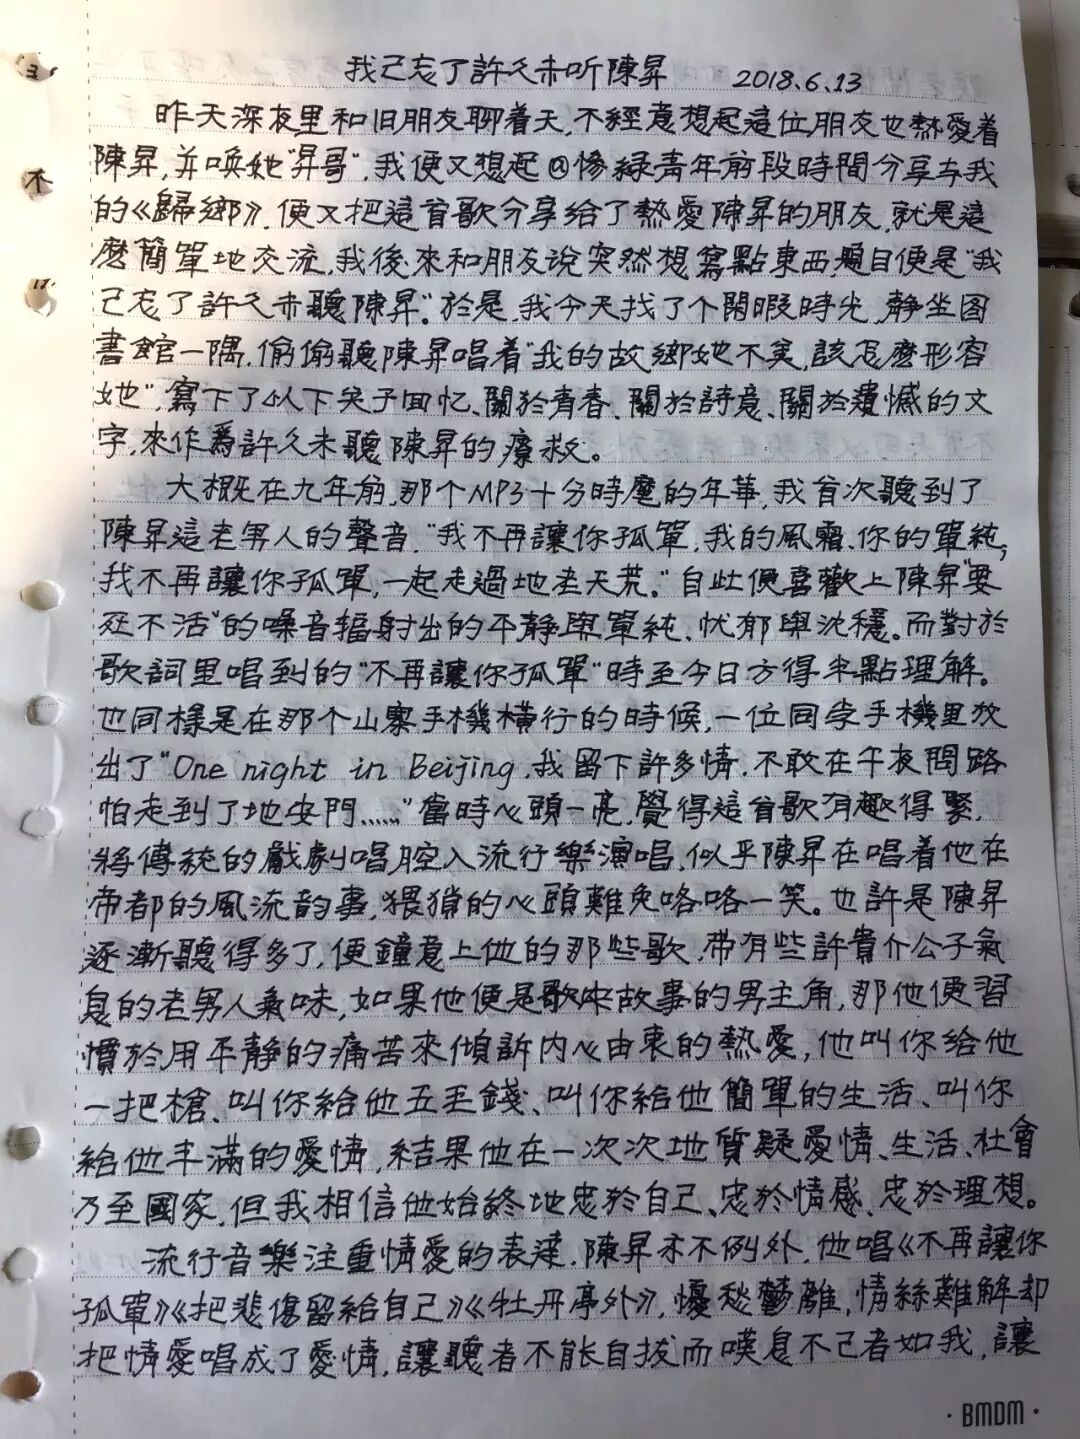 我己忘了許久未听陳昇 2018.6.13
昨天深夜里和旧朋友聊着天,不經意想起這位朋友也熱愛着
陳昇,并喚她"昇哥",我便又想起@慘綠青年前段時間分享与我
的《歸鄉》,便又把這首歌分享給了熱愛陳昇的朋友,就是這
麼簡單地交流,我後來和朋友说突然想寫點東西題目便是"我
己忘了許久未聽陳昇"。於是,我今天找了个閑暇時光,靜坐图
書館一隅,偷偷聽陳昇唱着"我的故鄉她不美,該怎麼形容
她",寫下了以下关于回忆、關於青春、關於詩意、關於遺憾的文
字,來作爲許久未聽陳昇的療救。
大概在九年前,那个MP3十分時髦的年華,我首次聽到了
陳昇這老男人的聲音,"我不再讓你孤單,我的風霜、你的單純,
我不再讓你孤單,一起走過地老天荒。"自此便喜歡上陳昇"要
死不活"的嗓音辐射出的平靜與單純、忧郁與沈穩。而對於
歌詞里唱到的"不再讓你孤單"時至今日方得半點理解。
也同樣是在那个山寨手機橫行的時候,一位同学手機里放
出了"One night in Beijing,我留下許多情,不敢在午夜問路
怕走到了地安門……"當時心頭一亮,覺得這首歌有趣得緊,
將傳統的戲劇唱腔入流行樂演唱,似乎陳昇在唱着他在
帝都的風流韵事,猥猥的心頭難免咯咯一笑。也許是陳昇
逐漸聽得多了,便鐘意上他的那些歌,帶有些許貴介公子氣
息的老男人氣味,如果他便是歌中故事的男主角,那他便習
慣於用平靜的痛苦來傾訴内心由衷的熱愛,他叫你給他
一把槍、叫你給他五毛錢、叫你給他簡單的生活、叫你
給他丰滿的愛情,結果他在一次次地質疑愛情、生活、社會
乃至國家,但我相信他始終地忠於自己、忠於情感、忠於理想。
流行音樂注重情愛的表達,陳昇亦不例外,他唱《不再讓你
孤單》《把悲傷留給自己》《牡丹亭外》,憂愁鬱離,情絲難解却
把情愛唱成了愛情,讓聽者不能自拔而嘆息不己者如我,讓
不
BMDM